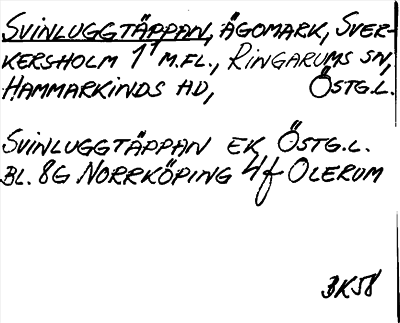 SVINLUGGTÄPPAN, ÄGOMARK, SVER-
KERSHOLM 1 M.FL., RINGARUMS SN,
HAMMARKINDS HD, ÖSTG.L.
SVINLUGGTÄPPAN EK ÖSTG.L.
BL. 8G NORRKÖPING 4f OLERUM
BK58